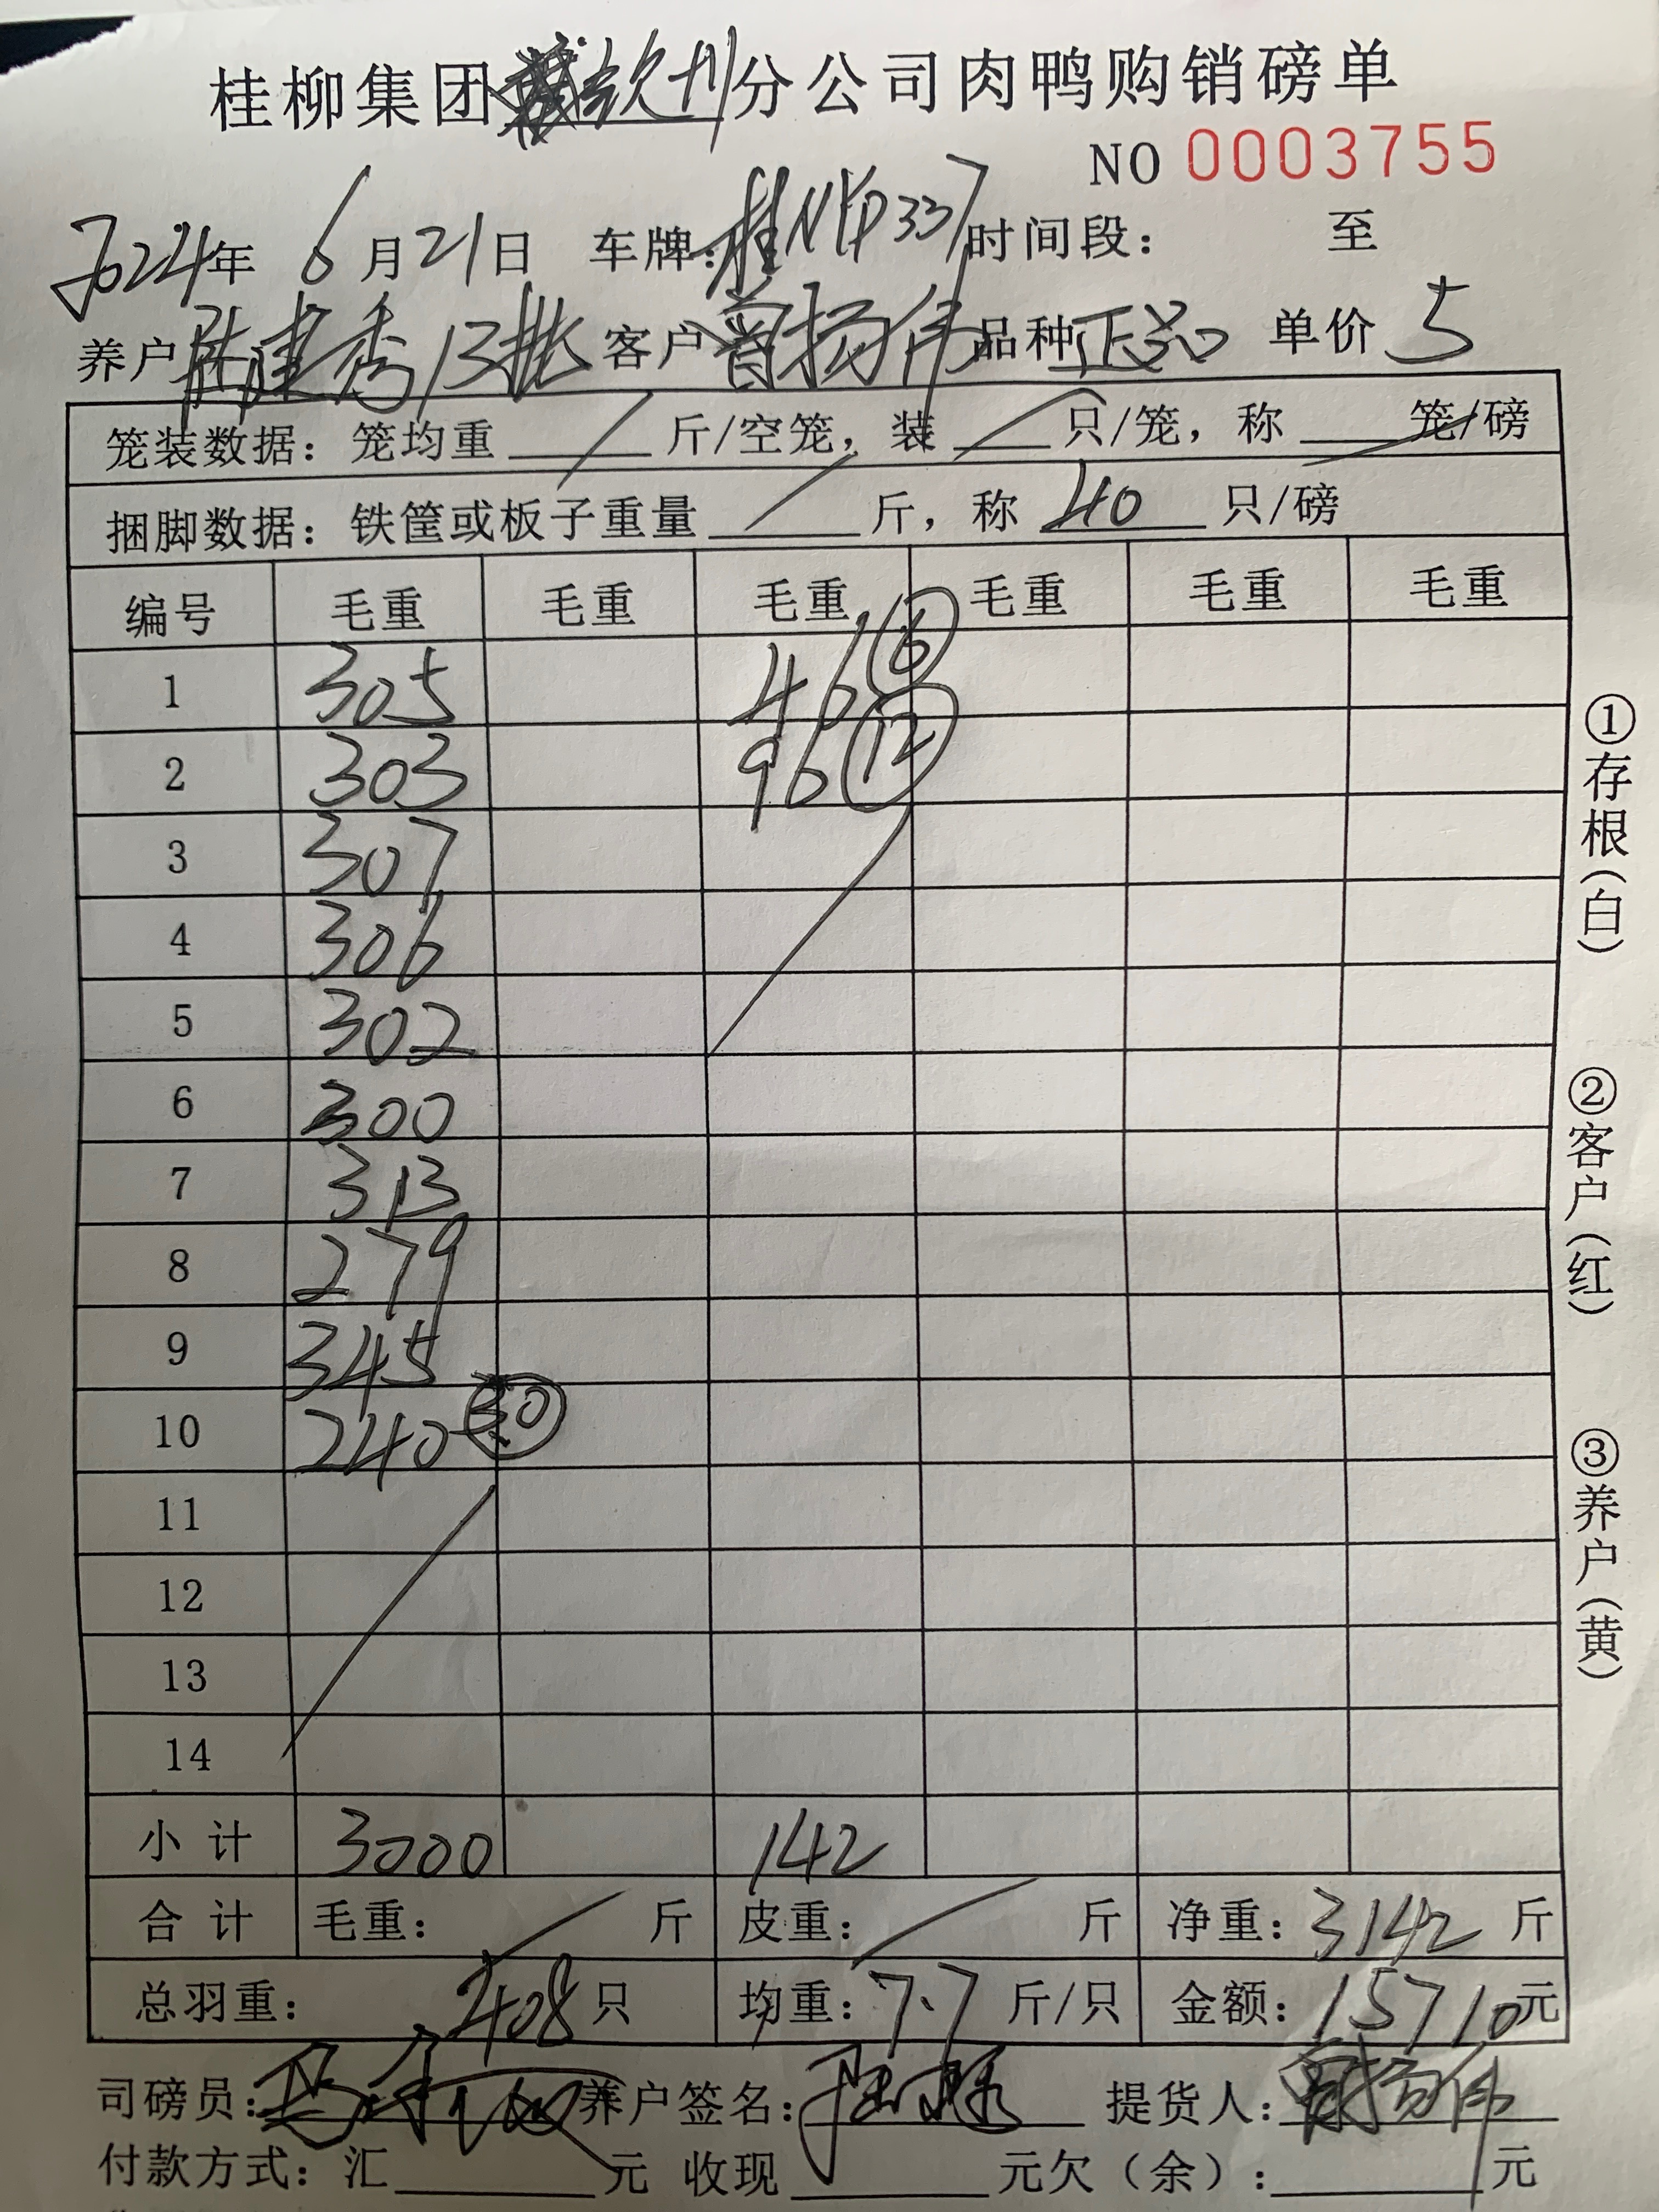 桂柳集团钦州分公司肉鸭购销磅单
NO 0003755
2024年 6月21日 车牌:桂N 337 时间段: 至
养户 建秀13批 客户 曾扬伟 品种 正品 单价 5
笼装数据: 笼均重 / 斤/空笼, 装 / 只/笼, 称 / 笼/磅
捆脚数据: 铁筐或板子重量 / 斤, 称 40 只/磅
编号 毛重 毛重 毛重 毛重 毛重 毛重
1 305 46 ⑥
2 303 96 ⑫
3 307
4 306
5 302
6 300
7 313
8 279
9 345
10 240 30
11
12
13
14
小计 3000 142
合计 毛重: / 斤 皮重: / 斤 净重: 3142 斤
总羽重: 408 只 均重: 7.7 斤/只 金额: 15710元
司磅员: 养户签名: 提货人: 曾扬伟
付款方式: 汇 元 收现 元欠(余): 元
①存根(白)
②客户(红)
③养户(黄)